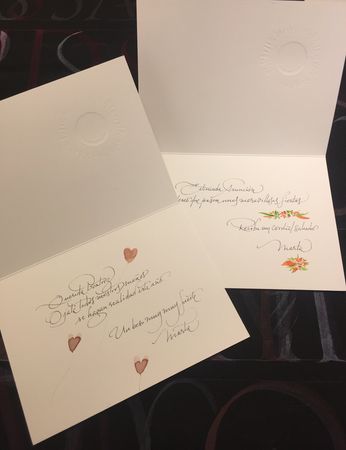 Querida Beatriz,
Ojalá todos nuestros sueños
se hagan realidad este año
Un beso muy muy fuerte
Marta
Estimada Asunción,
espero pasen unas maravillosas fiestas
Reciba un cordial saludo
Marta